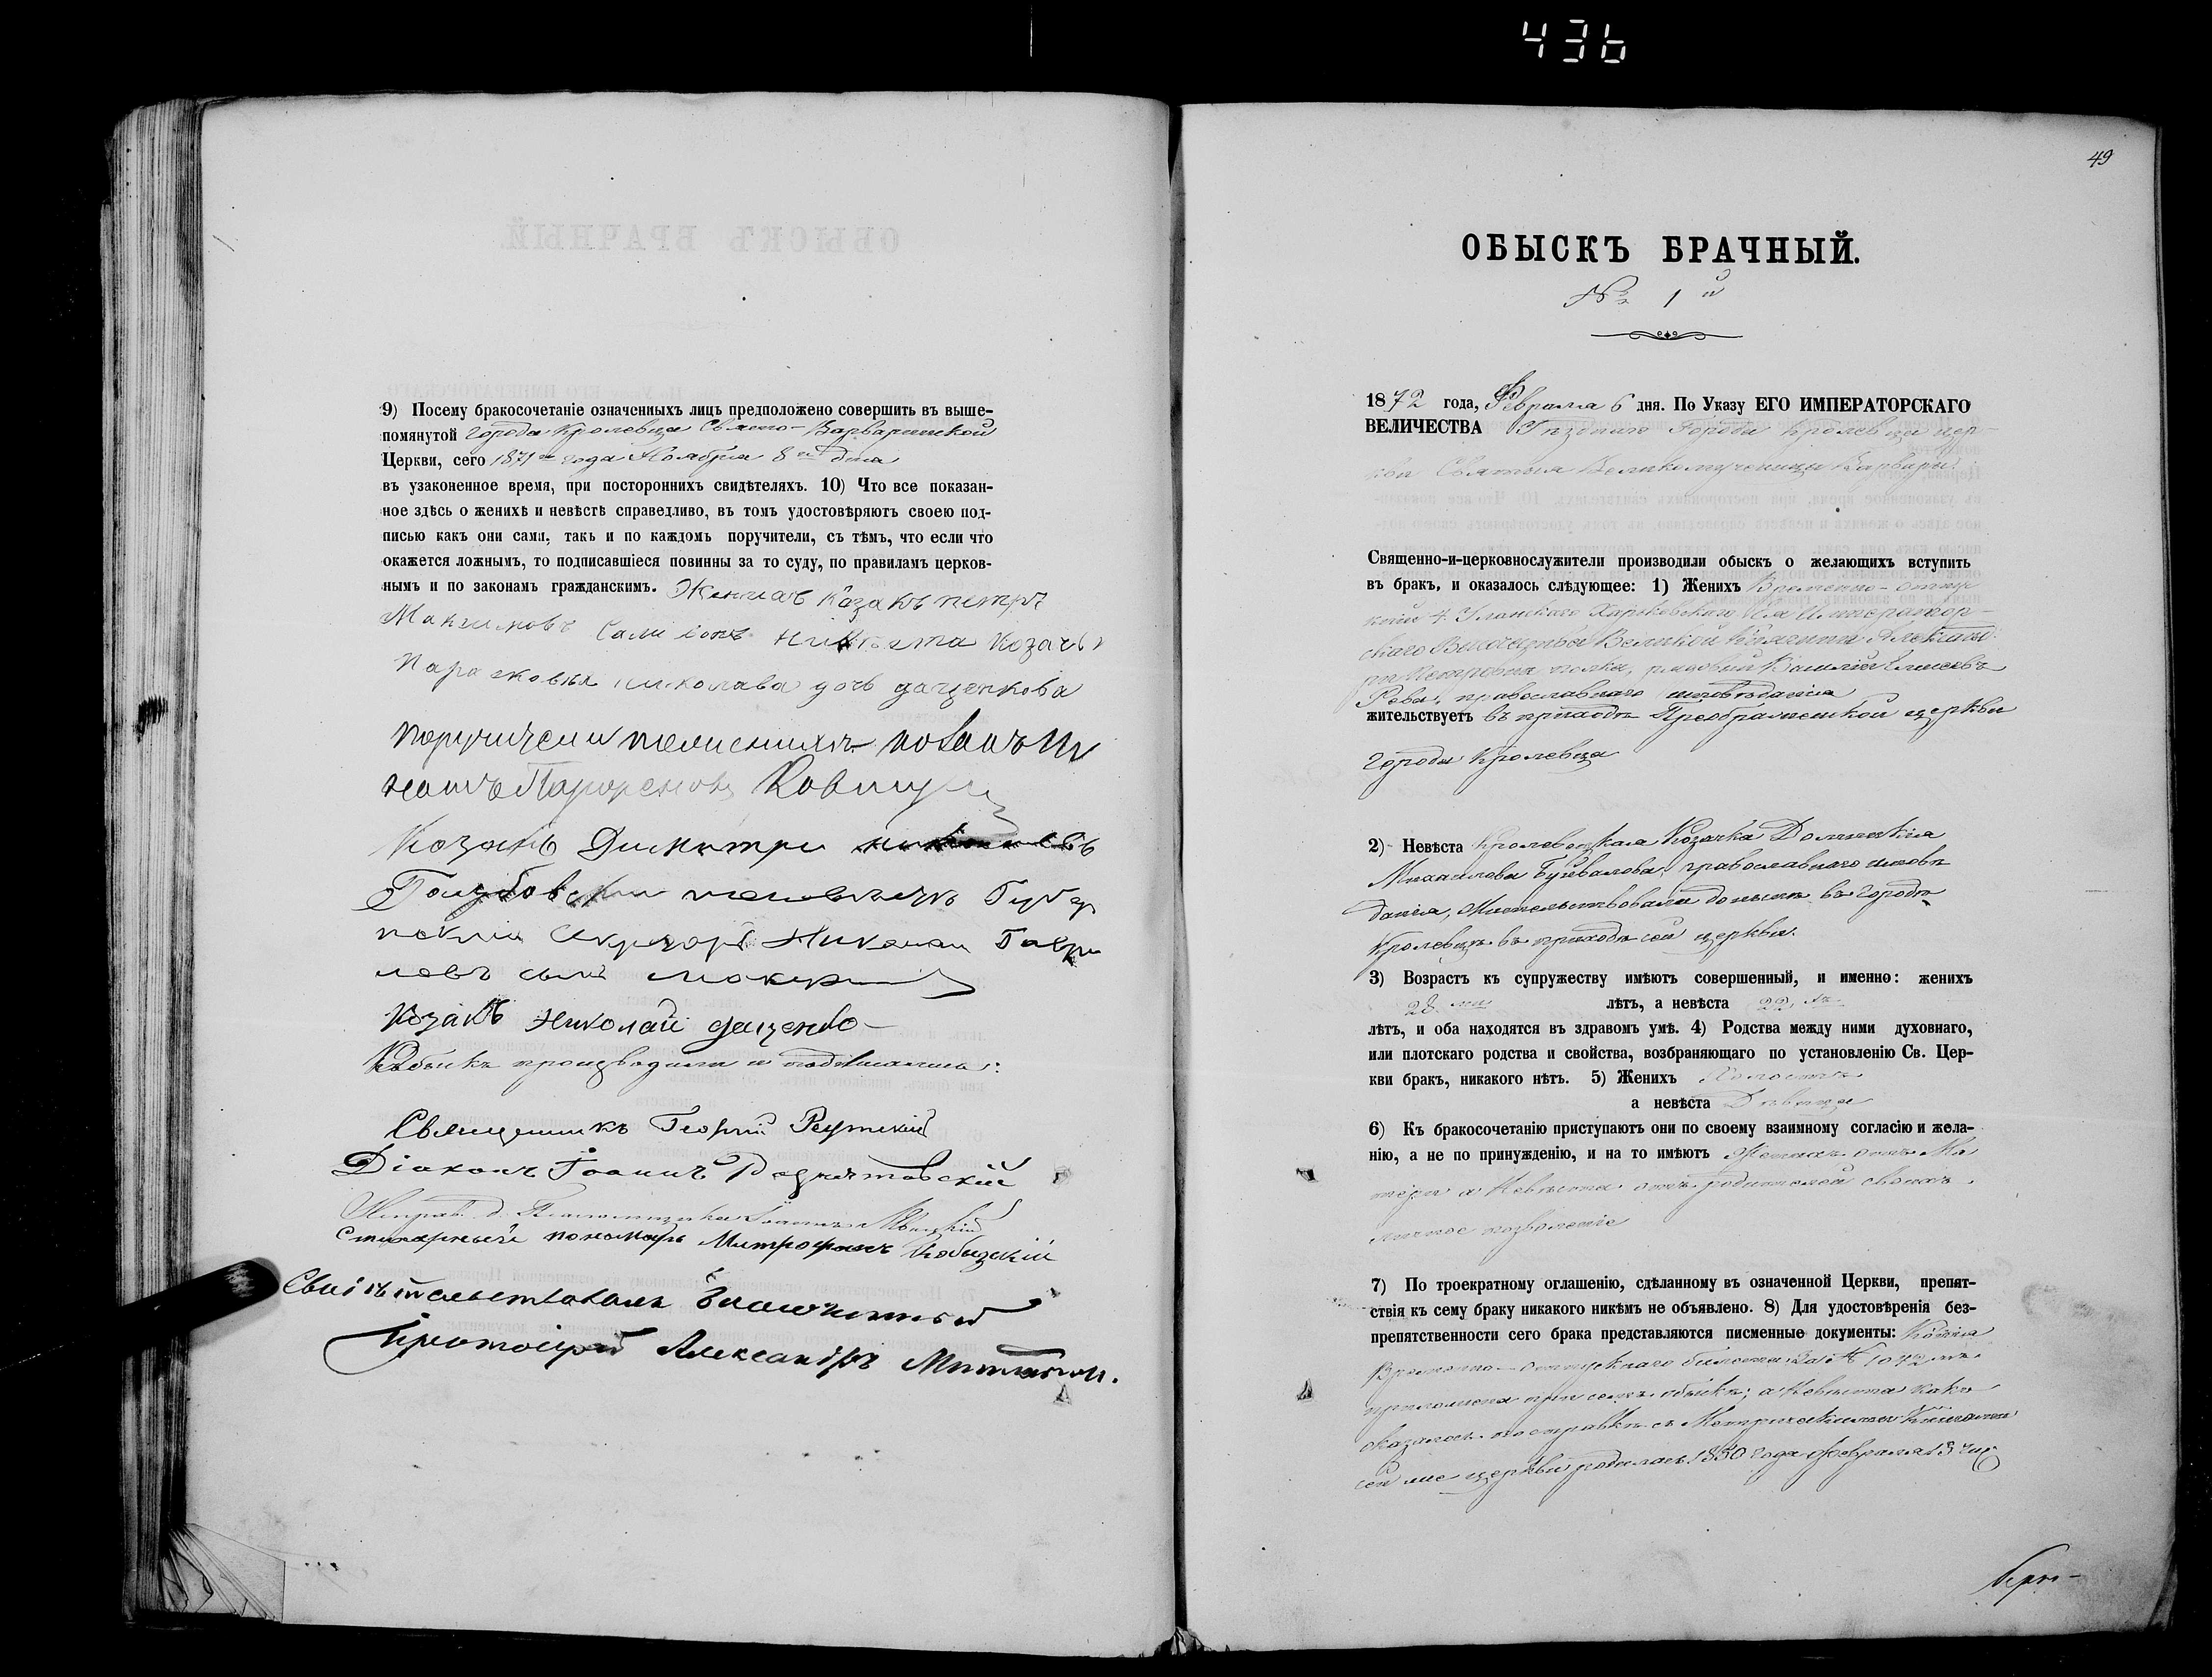 436
9) Посему бракосочетаніе означенныхъ лицъ предположено совершить въ выше-
помянутой города Кролевца Свято-Варваринской
Церкви, сего 1871го года Ноября 8го дня
въ узаконенное время, при постороннихъ свидѣтеляхъ. 10) Что все показан-
ное здѣсь о женихѣ и невѣстѣ справедливо, въ томъ удостовѣряютъ своею под-
писью какъ они сами, такъ и по каждомъ поручители, съ тѣмъ, что если что
окажется ложнымъ, то подписавшіеся повинны за то суду, по правиламъ церков-
нымъ и по законамъ гражданскимъ. Женихъ Козакъ петръ
Максимовъ невѣста козачка
дочь даценкова
Козакъ Димитри
секретарь Николай Гаври
ловъ сынъ
Козакъ Николай даценко
Обыскъ производили и подписались:
Священникъ Георгій Реутскій
Діаконъ Іоаннъ
Стихарный пономарь Митрофанъ Кобызскій
Свидѣтельствовалъ Благочинный
Протоіерей Александръ
49
ОБЫСКЪ БРАЧНЫЙ.
№ 1й
1872 года, Февраля 6 дня. По Указу ЕГО ИМПЕРАТОРСКАГО
ВЕЛИЧЕСТВА Уѣзднаго Города Кролевца цер-
кви Святыя Великомученицы Варвары
Священно-и-церковнослужители производили обыскъ о желающихъ вступить
въ бракъ, и оказалось слѣдующее: 1) Женихъ Временно-отпу
скной 4 Уланскаго Харьковскаго Ея Император-
скаго Высочества Великой Княгини Александ-
ры Петровны полка, рядовый Василій Елисеевъ
Рева, православнаго исповѣданія
жительствуетъ въ приходѣ Преображенской церкви
города Кролевца
2) Невѣста Кролевецкая Козачка Домникія
Михаилова Буйвалова, православнаго исповѣ
данія, жительствовала донынѣ въ городѣ
Кролевцѣ въ приходѣ сей церкви.
3) Возрастъ къ супружеству имѣютъ совершенный, и именно: женихъ
28 ми лѣтъ, а невѣста 22,
лѣтъ, и оба находятся въ здравомъ умѣ. 4) Родства между ними духовнаго,
или плотскаго родства и свойства, возбраняющаго по установленію Св. Цер-
кви бракъ, никакого нѣтъ. 5) Женихъ Холостъ
а невѣста Дѣвица
6) Къ бракосочетанію приступаютъ они по своему взаимному согласію и жела-
нію, а не по принужденію, и на то имѣютъ Женихъ отъ Ма
тери а Невѣста отъ родителей своихъ
личное позволеніе
7) По троекратному оглашенію, сдѣланному въ означенной Церкви, препят-
ствія къ сему браку никакого никѣмъ не объявлено. 8) Для удостовѣренія без-
препятственности сего брака представляются писменные документы: Копія
Временно-отпускнаго билета за № 1072 мъ
приложена при семъ обыскѣ; а Невѣста какъ
оказалось по справкѣ съ Метрическими Книгами
сей же церкви родилась 1850 года Февраля 13 чис